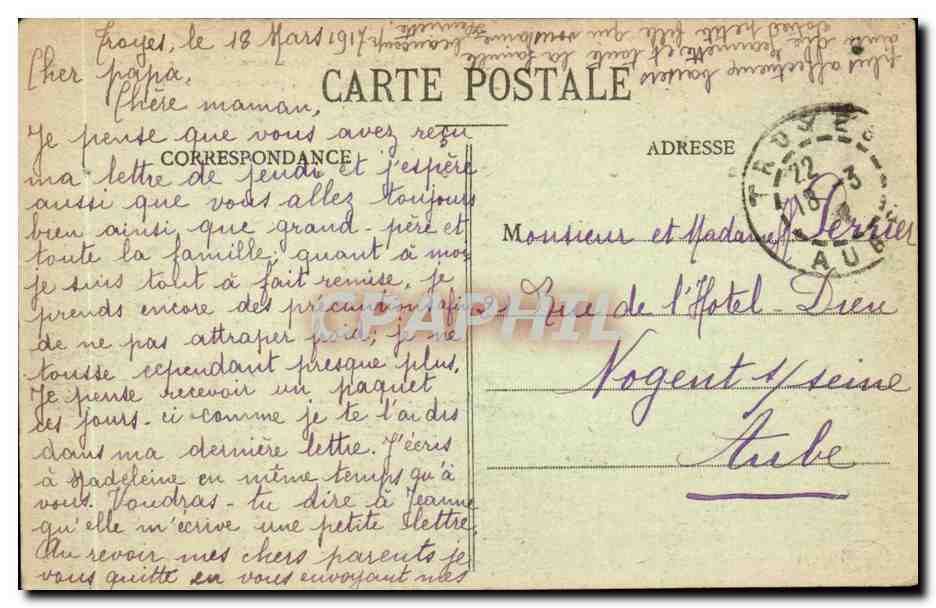 Troyes, le 18 Mars 1917
Cher papa,
Chère maman,
CARTE POSTALE
CORRESPONDANCE
Je pense que vous avez reçu
ma lettre de jeudi et j'espère
aussi que vous allez toujours
bien ainsi que grand-père et
toute la famille, quant à moi
je suis tout à fait remise, je
prends encore des précautions afin
de ne pas attraper froid, je ne
tousse cependant presque plus.
Je pense recevoir un paquet
ces jours-ci comme je te l'ai dis
dans ma dernière lettre. J'écris
à Madeleine en même temps qu'à
vous. Voudras-tu dire à Jeanne
qu'elle m'écrive une petite lettre.
Au revoir mes chers parents je
vous quitte en vous envoyant mes
plus affectueux baisers
ainsi que Jeannette et toute la famille
petite fille qui vous aime beaucoup
Henriette
ADRESSE
Monsieur et Madame Perrier
9, Rue de l'Hotel-Dieu
Nogent s/seine
Aube
TROYES
22
18 3
AUBE
CPAPHIL